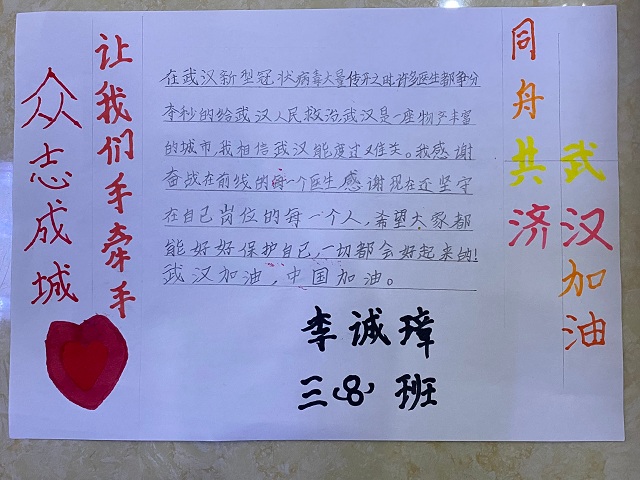 众志成城
让我们手牵手
在武汉新型冠状病毒大量传开之时,许多医生都争分
夺秒的给武汉人民救治武汉是一座物产丰富
的城市,我相信武汉能度过难关。我感谢
奋战在前线的每一个医生感谢现在还坚守
在自己岗位的每一个人,希望大家都
能好好保护自己,一切都会好起来的!
武汉加油,中国加油。
李诚璋
三8班
同舟共济
武汉加油